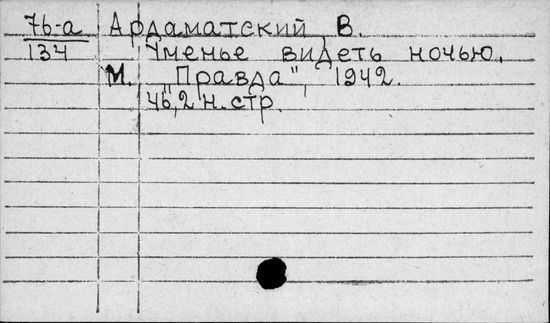 76-а Ардаматский, В.
134 Уменье видеть ночью.
М. "Правда", 1942.
46,2 н.стр.